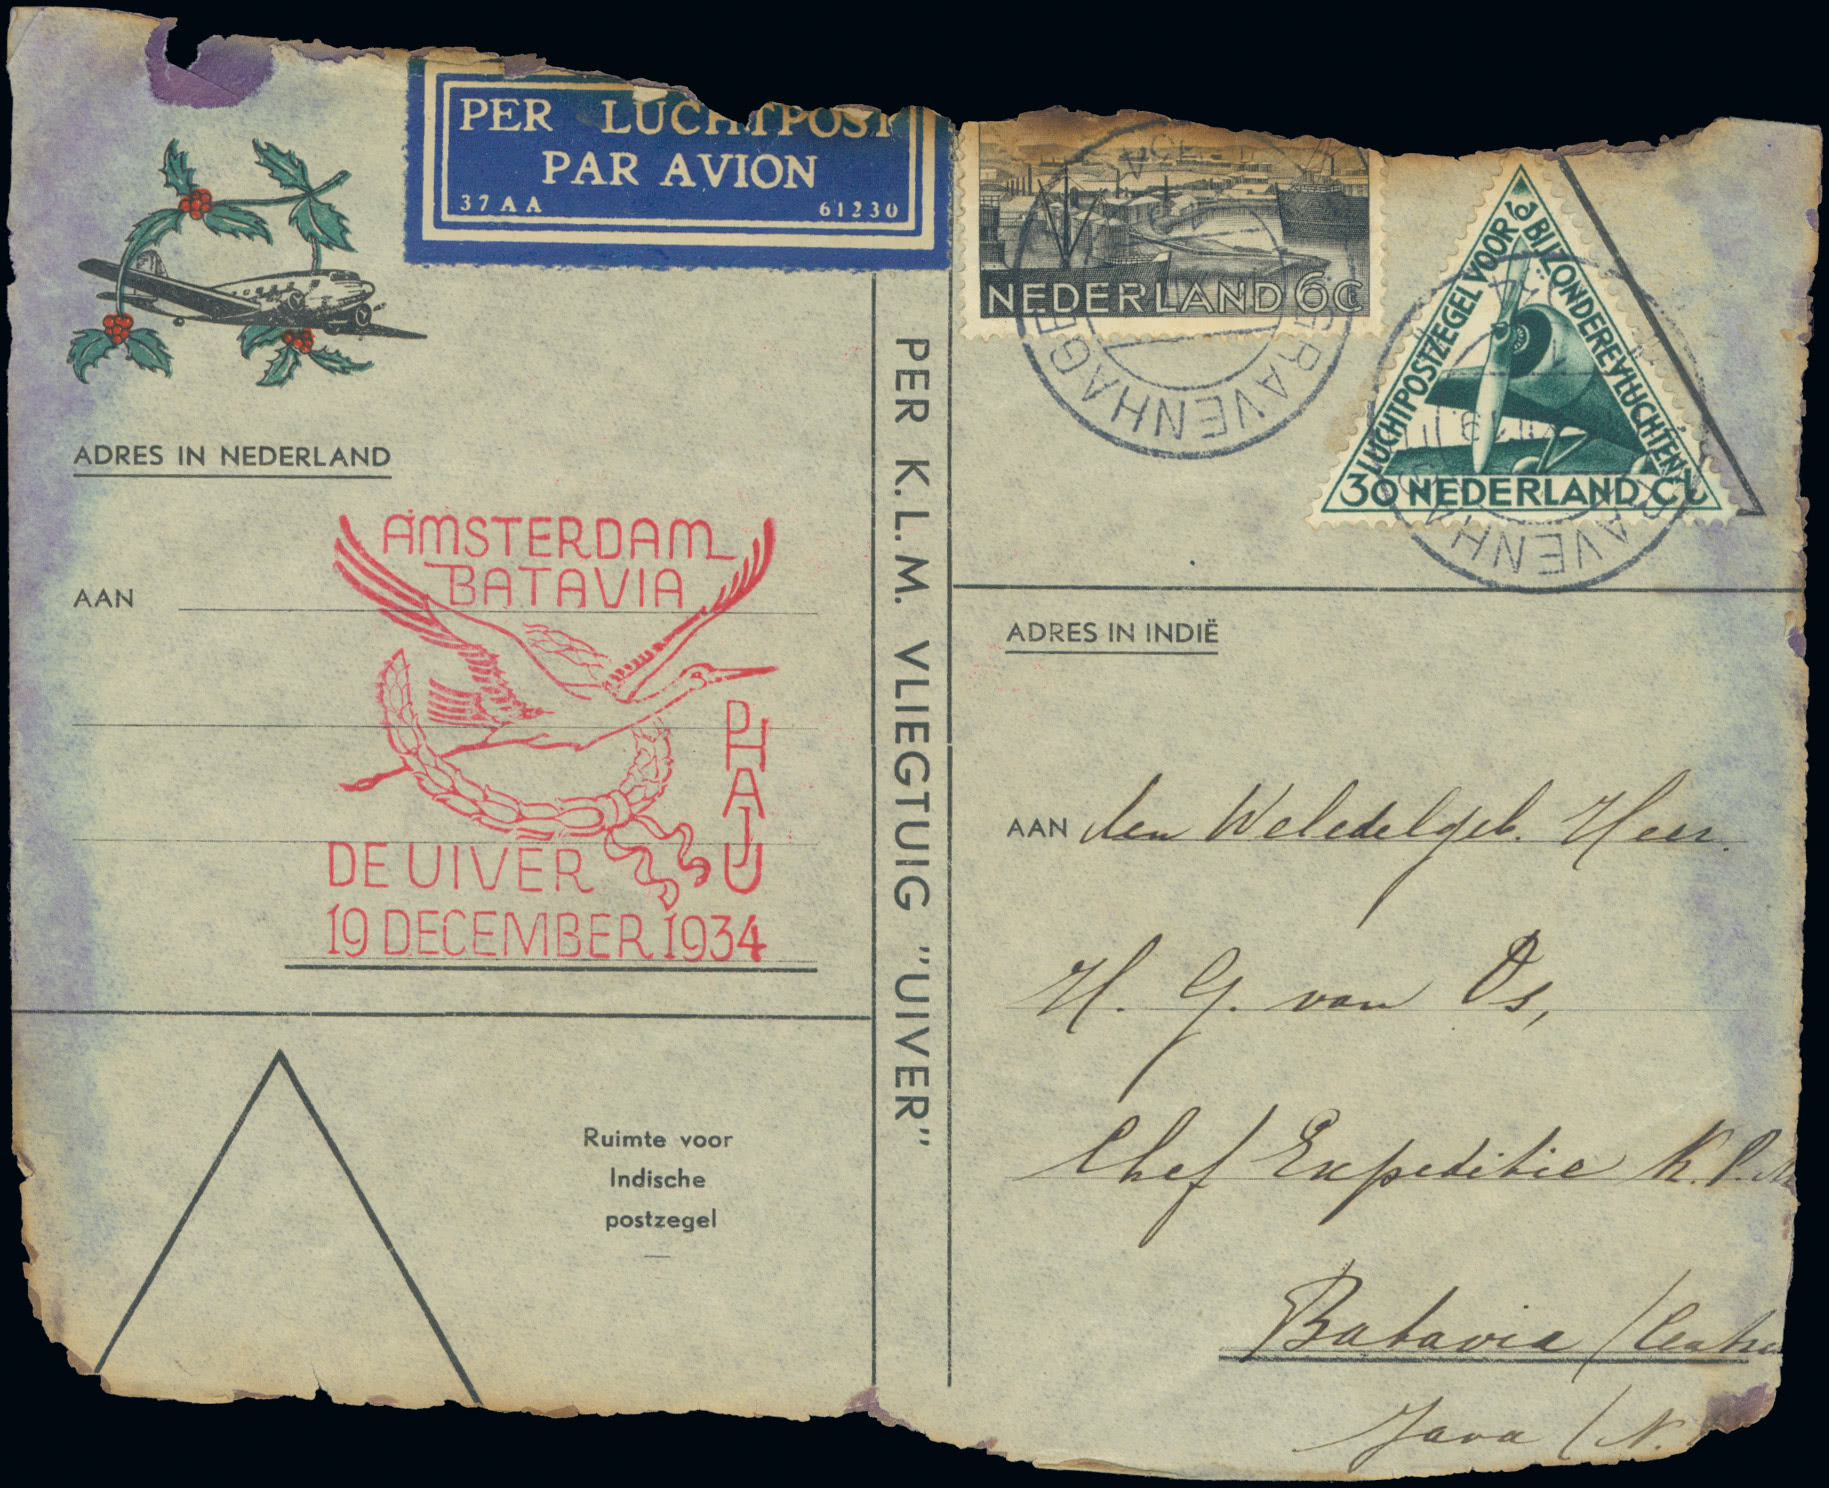 PER LUCHTPOST
PAR AVION
37AA 61230
NEDERLAND 6C
LUCHTPOSTZEGEL VOOR
BIJZONDERE VLUCHTEN
30 NEDERLAND CT
'S GRAVENHAGE
GRAVENHAGE
ADRES IN NEDERLAND
AAN
AMSTERDAM
BATAVIA
PH
AJU
DE UIVER
19 DECEMBER 1934
Ruimte voor
Indische
postzegel
PER K.L.M. VLIEGTUIG "UIVER"
ADRES IN INDIË
AAN den Weledelgeb. Heer.
H. G. van Os,
Chef Expeditie K.P.M
Batavia (Centr
Java (N.